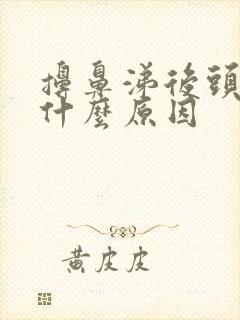 擤鼻涕後頭
什麼原因
黃皮皮